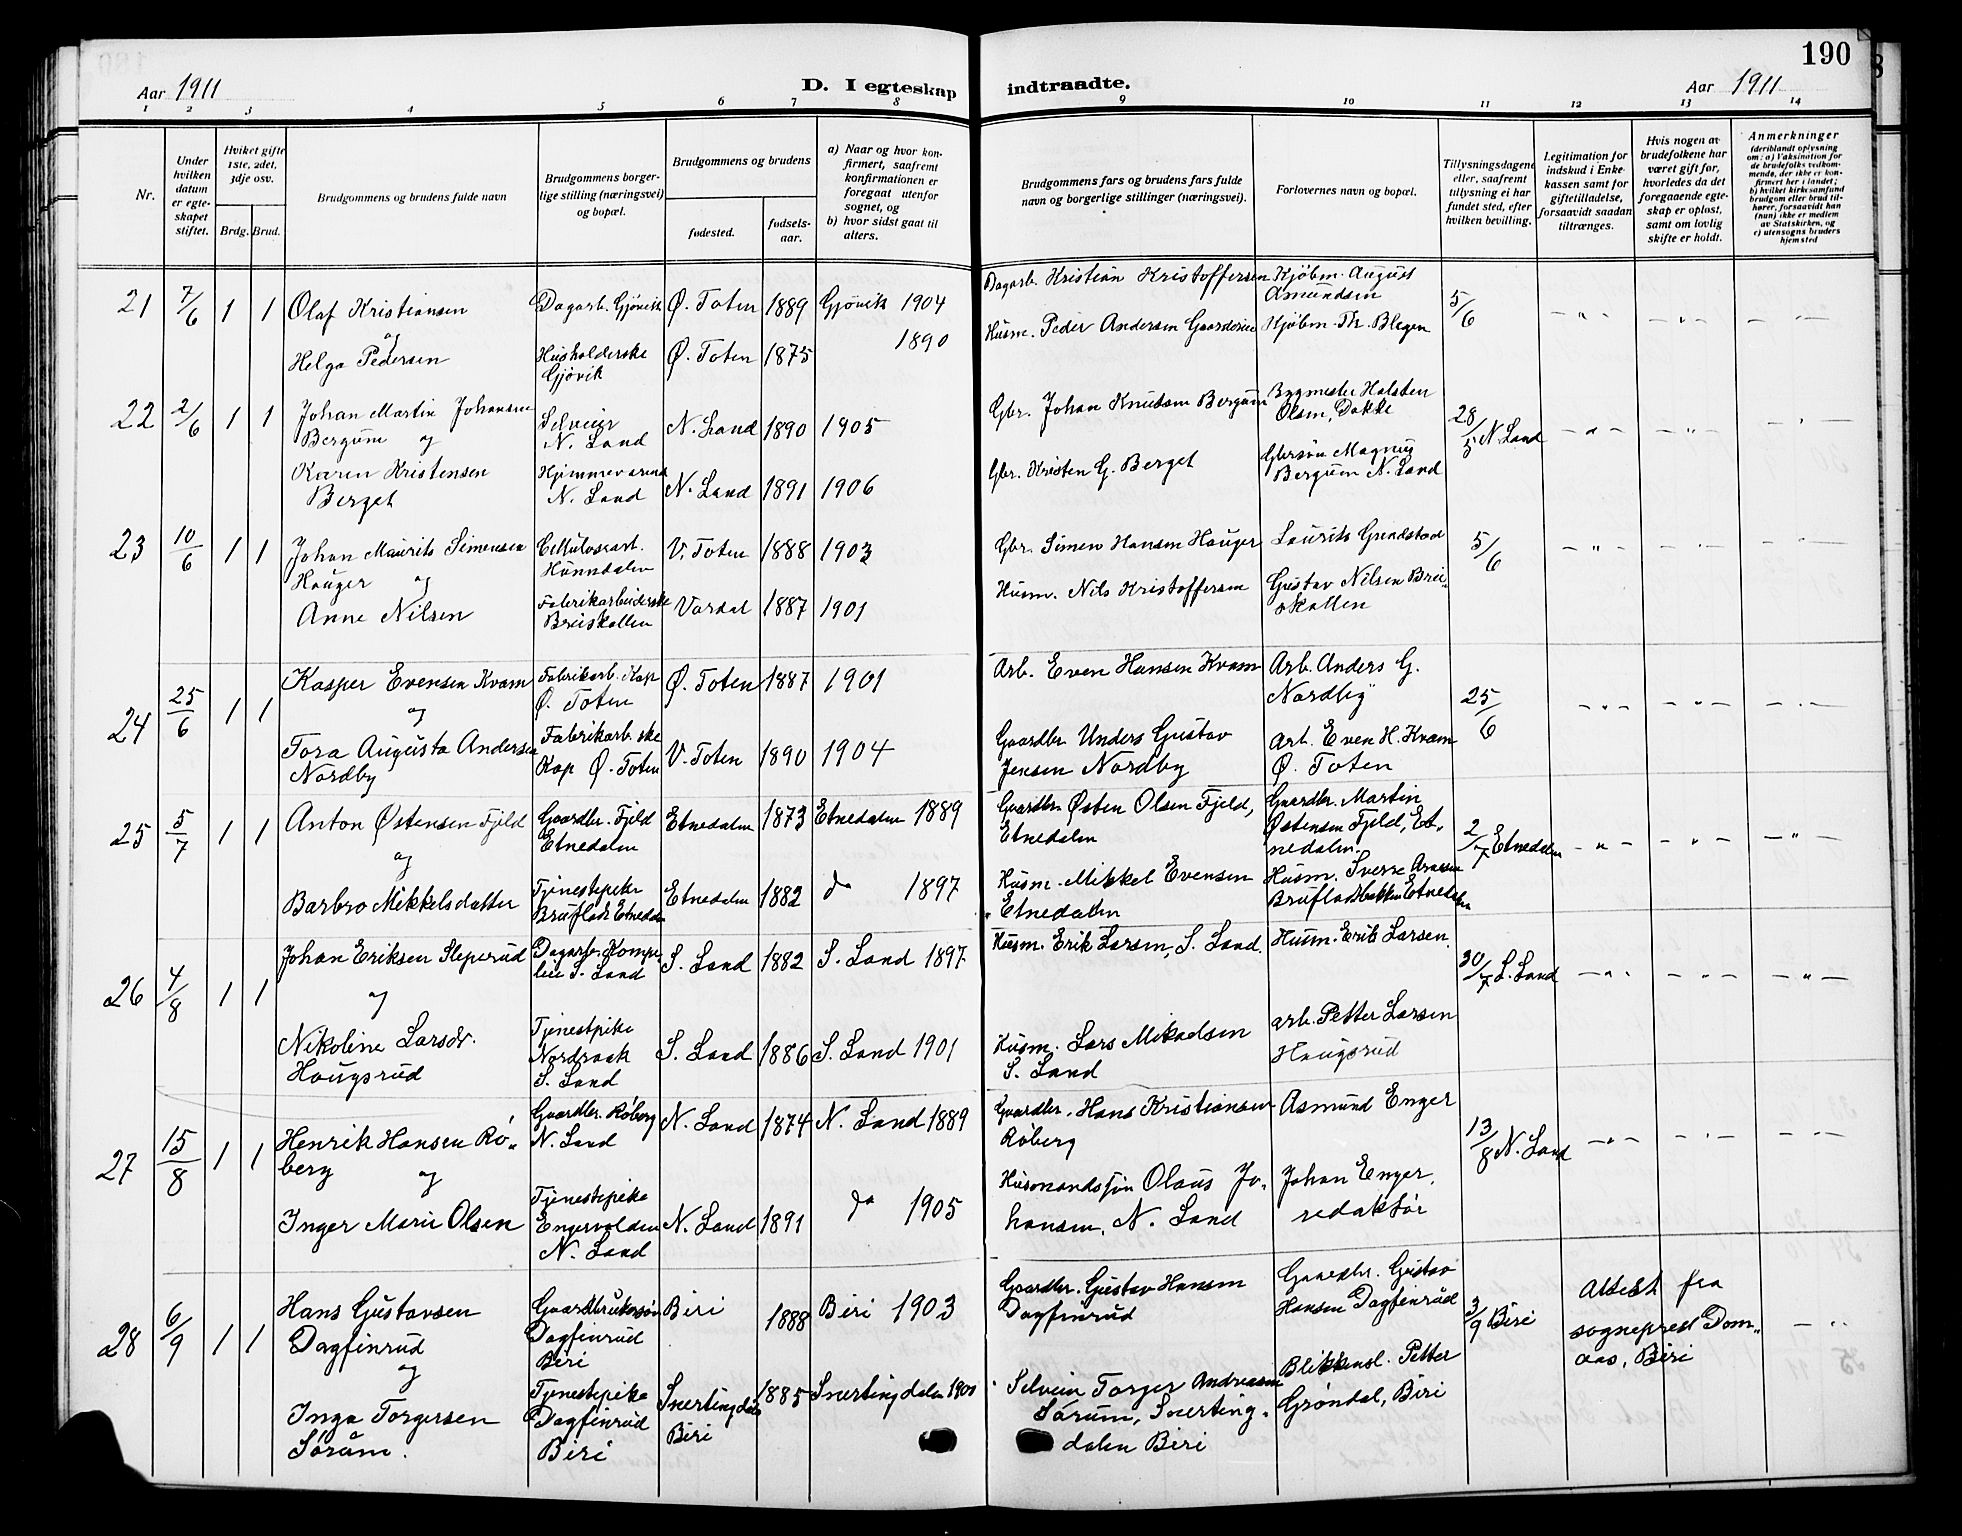 190
Aar 1911
D. I egteskap indtraadte.
Aar 1911
1 2 3 4 5 6 7 8 9 10 11 12 13 14
Nr.
Under hvilken datum er egteskapet stiftet.
Hviket gifte 1ste, 2det, 3dje osv.
Brdg. Brud.
Brudgommens og brudens fulde navn
Brudgommens borgerlige stilling (næringsvei) og bopæl.
Brudgommens og brudens
fødested. fødselsaar.
a) Naar og hvor konfirmert, saafremt konfirmationen er foregaat utenfor sognet, og
b) hvor sidst gaat til alters.
Brudgommens fars og brudens fars fulde navn og borgerlige stillinger (næringsvei).
Forlovernes navn og bopæl.
Tillysningsdagene eller, saafremt tillysning ei har fundet sted, efter hvilken bevilling.
Legitimation for indskud i Enkekassen samt for giftetilladelse, forsaavidt saadan tiltrænges.
Hvis nogen av brudefolkene har været gift før, hvorledes da det foregaaende egteskap er opløst, samt om lovlig skifte er holdt.
Anmerkninger (deriblandt oplysning om: a) Vaksination for de brudefolks vedkommende, der ikke er konfirmert her i landet; b) hvilket kirkesamfund brudgom eller brud tilhører, forsaavidt han (hun) ikke er medlem av Statskirken, og c) utensogns bruders hjemsted
21 7/6 1 1 Olaf Kristiansen Dagarb. Gjøvik Ø. Toten 1889 Gjøvik 1904 Dagarb. Kristian Kristoffersen Kjøbm. August Amundsen 5/6 - " - - " - - " -
og
Helga Pedersen Husholderske Gjøvik Ø. Toten 1875 1890 Husm. Peder Andersen Kjøbm. Th. Blegen
22 2/6 1 1 Johan Martin Johansen Bergum og Selveier N. Land N. Land 1890 1905 Gbr. Johan Knudsen Bergum Bygmester Halsten Olsen, Dokke 28/5 N. Land - " - - " - - " -
Karen Kristensen Berget Hjemmevarend N. Land N. Land 1891 1906 Gbr. Kristen G. Berget Gbrsøn Magnus Bergum N. Land
23 10/6 1 1 Johan Maurits Simensen Hauger og Cellulosearb. Hunndalen V. Toten 1888 1903 Gbr. Simen Hansen Hauger Laurits Grindstad 5/6 - " - - " - - " -
Anne Nilsen Fabrikarbeiderske Breiskallen Vardal 1887 1901 Husm. Nils Kristoffersen Gustav Nilsen Breiskallen
24 25/6 1 1 Kasper Evensen Kvam og Fabrikarb. Kap Ø. Toten Ø. Toten 1887 1901 Arb. Even Hansen Kvam Arb. Anders G. Nordby 25/6 - " - - " - - " -
Tora Augusta Andersen Nordby Fabrikarb.ske Kap Ø. Toten V. Toten 1890 1904 Gaardbr. Anders Gustav Jensen Nordby Arb. Even H. Kvam Ø. Toten
25 5/7 1 1 Anton Østensen Fjeld og Gaardbr. Fjeld Etnedalen Etnedalen 1873 Etnedalen 1889 Gaardbr. Østen Olsen Fjeld, Etnedalen Gaardbr. Martin Østensen Fjeld, Etnedalen. 2/7 Etnedalen - " - - " - - " -
Barbro Mikkelsdatter Tjenestepike Bruflat Etnedalen Etnedalen 1882 do 1897 Husm. Mikkel Evensen Etnedalen Husm. Sverre Bruflatbakken Etnedalen
26 4/8 1 1 Johan Eriksen Sleperud og Dagarb. Kompelien S. Land S. Land 1882 S. Land 1897 Husm. Erik Larsen, S. Land. Husm. Erik Larsen. 30/7 S. Land - " - - " - - " -
Nikoline Larsdr. Haugsrud Tjenestepike Nordraak S. Land S. Land 1886 S. Land 1901 Husm. Lars Mikaelsen S. Land Arb. Petter Larsen Haugsrud
27 15/8 1 1 Henrik Hansen Røberg og Gaardbr. Røberg N. Land N. Land 1874 N. Land 1889 Gaardbr. Hans Kristiansen Røberg Asmund Enger 13/8 N. Land - " - - " - - " -
Inger Marie Olsen Tjenestepike Engervolden N. Land N. Land 1891 do 1905 Husmandssøn Olaus Johansen, N. Land Johan Enger, redaktør
28 6/9 1 1 Hans Gustavsen Dagfinrud og Gaardbrukersøn Dagfinrud Biri Biri 1888 Biri 1903 Gaardbr. Gustav Hansen Dagfinrud Gaardbr. Gustav Hansen Dagfinrud 3/9 Biri Attest fra sogneprest Domaas, Biri - "
Inga Torgersen Sørum. Tjenestepike Dagfinrud Biri Snertingdalen Biri 1885 Snertingdalen 1900 Selveier Torger Andreassen Sørum, Snertingdalen Biri Blikkensl. Petter Grøndal, Biri